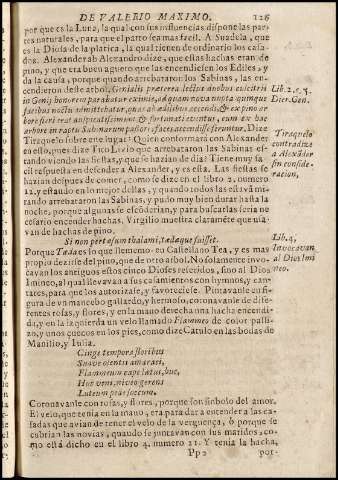 DE VALERIO MAXIMO. 126
porque es la Luna, la qual con sus influencias dispone las par-
tes naturales, para que el parto sea mas facil. A Suadela, que
es la Diosa de la platica, la qual tienen de ordinario los casa-
dos. Alexander ab Alexandro dize, que estas hachas eran de
pino, y que era buen aguero que las encendiessen los Ediles, y
da la causa, porque quando arrebataron los Sabinas, las en-
cendieron deste arbol. Genialis præterea lectus
in Genij honorem
facibus noctu
bore
arbore in raptu Sabinarum pastores faces accendisse feruntur. Dize
Tiraquelo sobre este lugar: Quien conformarà con Alexander
en esto, pues dize Tito Livio que arrebataron las Sabinas es-
tando viendo las fiestas, y que se hazian de dia? Tiene muy fa-
cil respuesta en defender a Alexander, y es esta. Las fiestas se
hazian despues de comer, como se dize en el libro 2. numero
12. y estando en lo mejor dellas, y quando todos las estavã mi-
rando arrebataron las Sabinas, y pudo muy bien durar hasta la
noche, porque algunas se escõderian, y para buscarlas seria ne
cesario encender hachas. Virgilio muestra claramẽte que usa
van de hachas de pino.
Si non pertæsum thalami, tædæque fuisset.
Porque Tæda es lo que llamamos en Castellano Tea, y es mas
proprio dezirse del pino, que de otro arbol. No solamente invo-
cavan los antiguos estos cinco Dioses referidos, sino al Dios
Imineo, al qual llevavan a sus casamientos con hymnos, y can-
tares, para que los autorizasse, y favoreciesse. Pintavanle en fi-
gura de vn mancebo gallardo, y hermoso, coronavanle de dife-
rentes rosas, y flores, y en la mano derecha vna hacha encendi-
da, y en la izquierda vn velo llamado Flammeo de color paxi-
zo, y vnos çuecos en los pies, como dize Catulo en las bodas de
Manilio, y Iulia.
Cinge tempora floribus
Suave olentis amaraci,
Flammeum cape lætus, huc,
Huc veni, niveo gerens
Luteum pede soccum.
Coronavanle con rosas, y flores, porque son simbolo del amor.
El velo, que tenia en la mano, era para dar a entender a las ca-
sadas que avian de tener el velo de la verguença, ò porque se
cubrian las novias, quando se juntavan con sus maridos, co-
mo està dicho en el libro 4. numero 21. Y tenia la hacha,
Pp 2 por-
Lib. 2. c. 5.
Dier. Gen.
Tiraquelo
contradize
a Alexãder
sin conside-
racion,
Lib. 4,
Invocavan
al Dios Imi
neo.